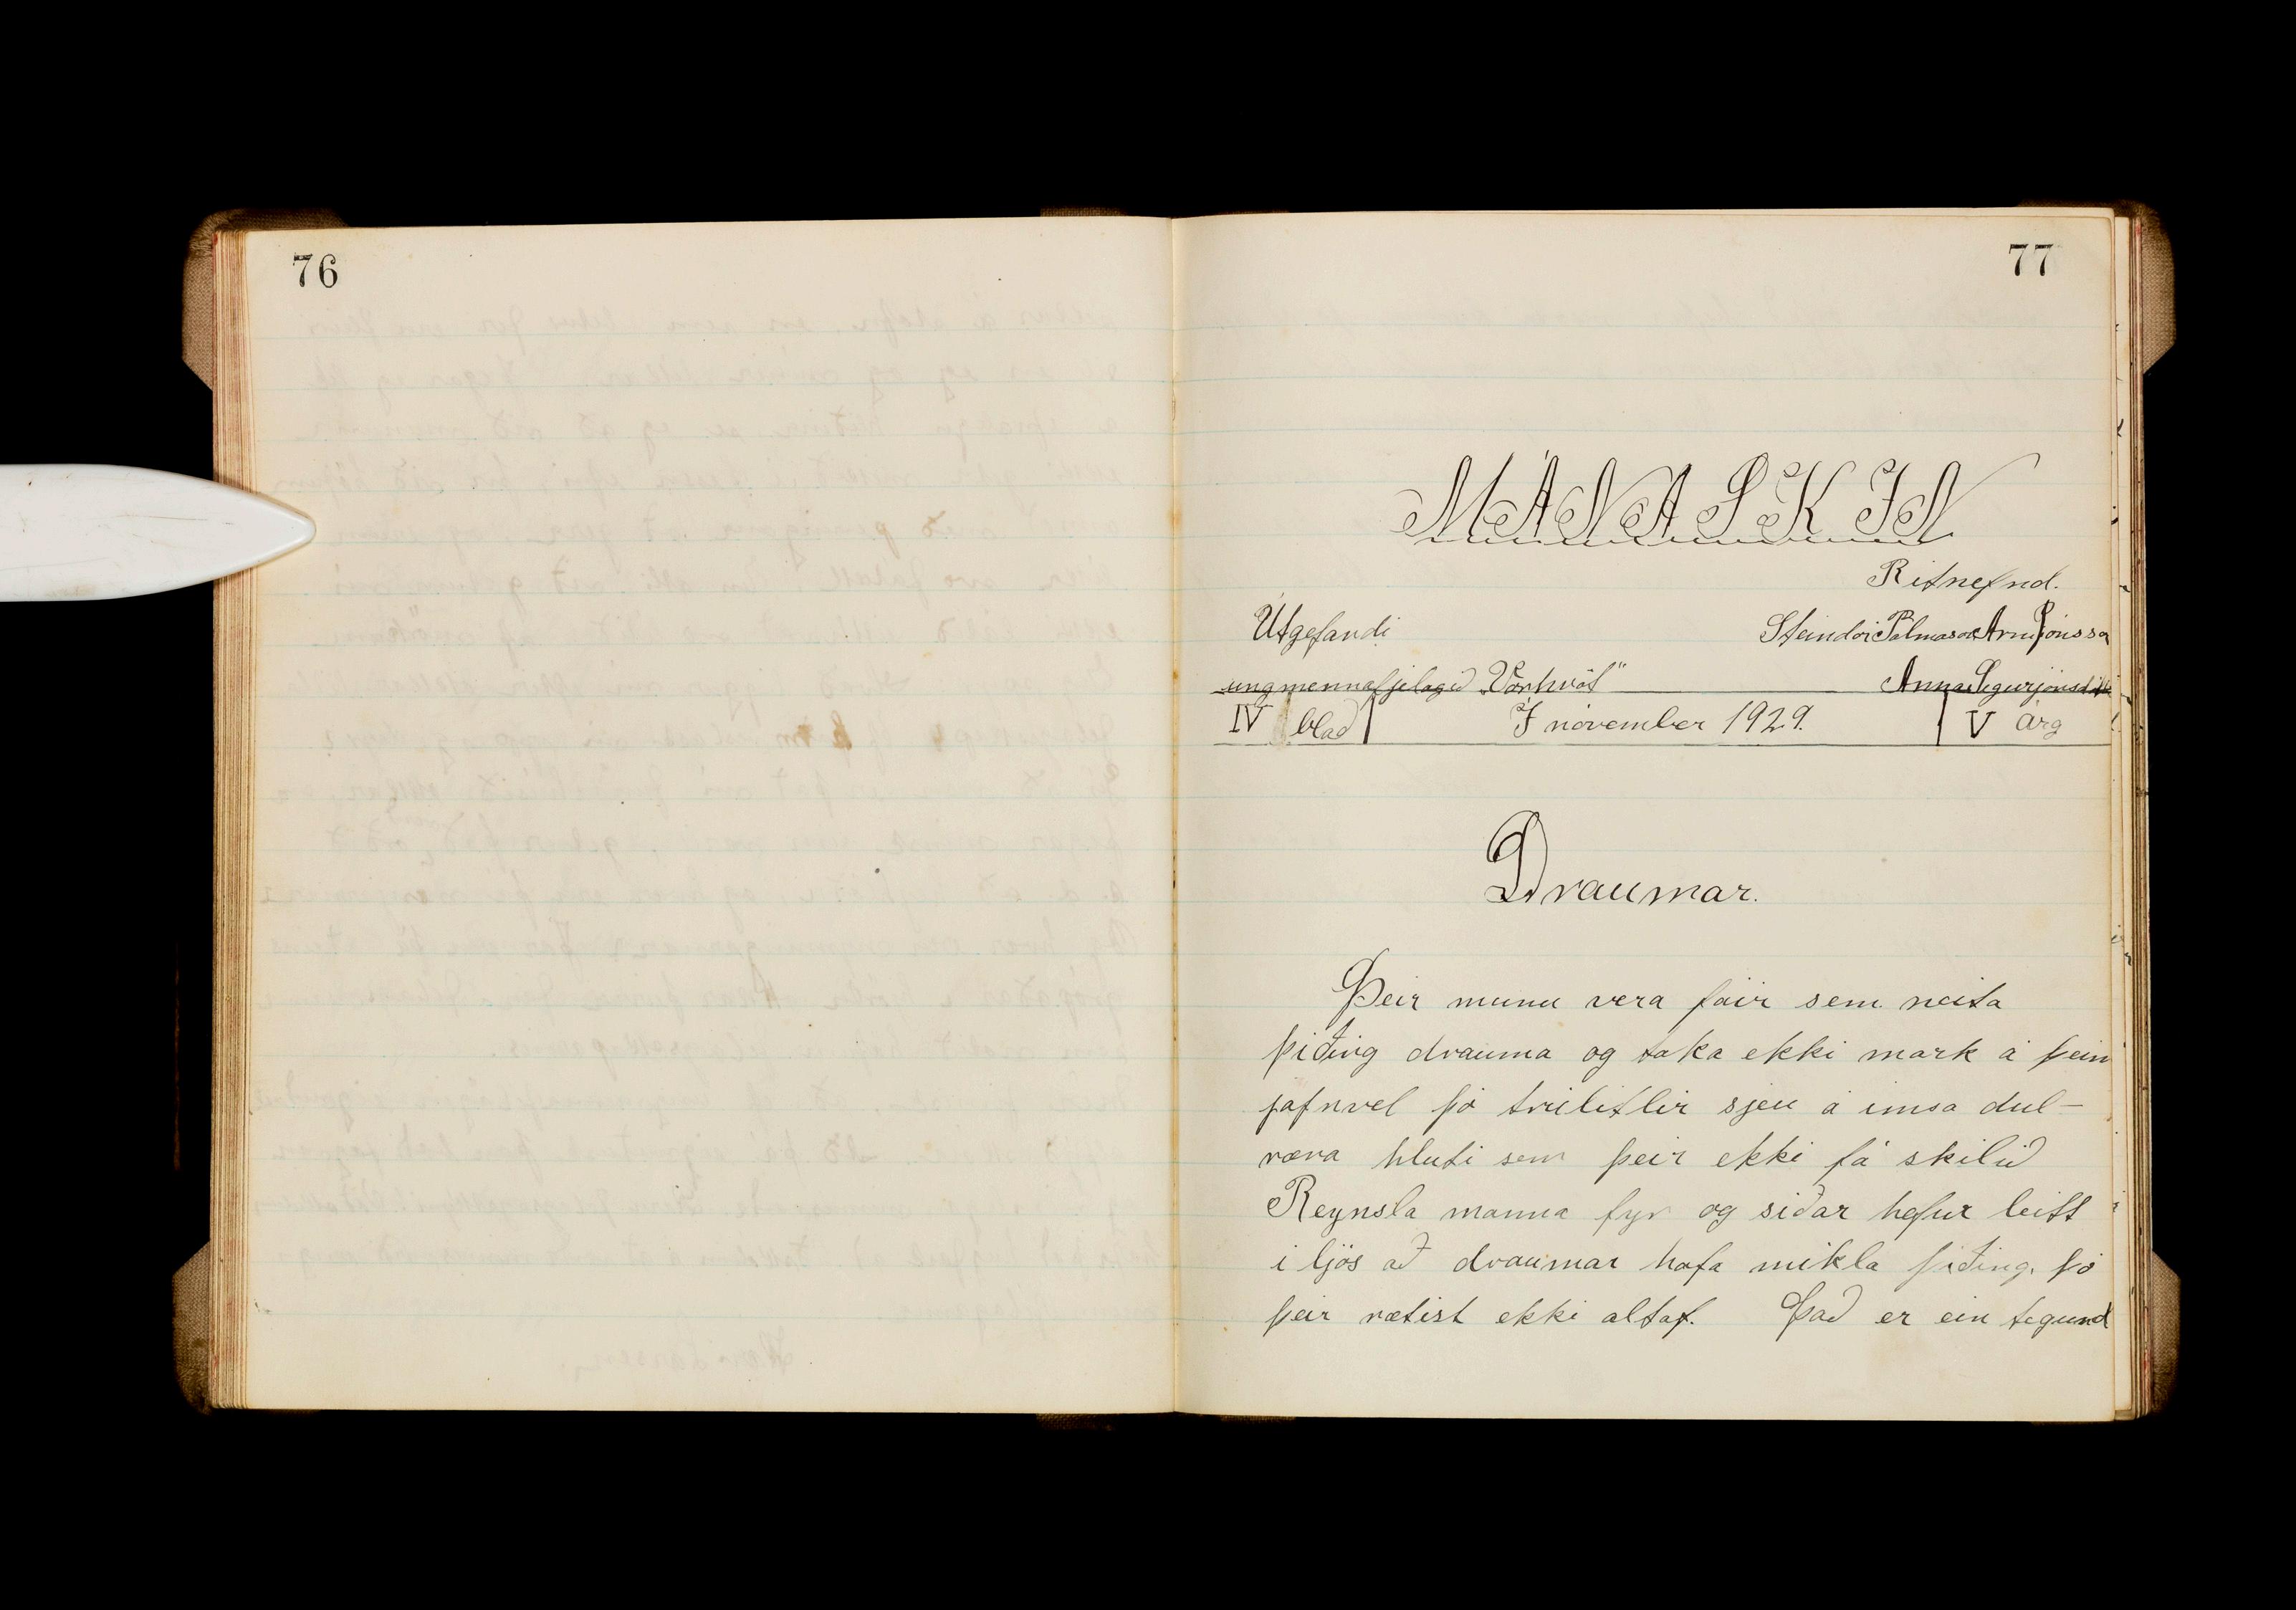 76
77
MÁNASKIN
Ritnefnd.
Útgefandi Steindór Pálmason Arni Jónsso
ungmennafjelagid „Vorhvöt" Anna Sigurjónsdótt
IV blad I november 1929. V árg
Draumar.
Þeir munu vera fáir sem neita
þiðing drauma og taka ekki mark á þeim
jafnvel þó trúlitlir sjeu á imsa dul-
ræna hluti sem þeir ekki fá skilið
Reynsla manna fyr og siðar hefur leitt
i ljós að draumar hafa mikla þiðing. þó
þeir rætist ekki altaf. Það er ein tegund